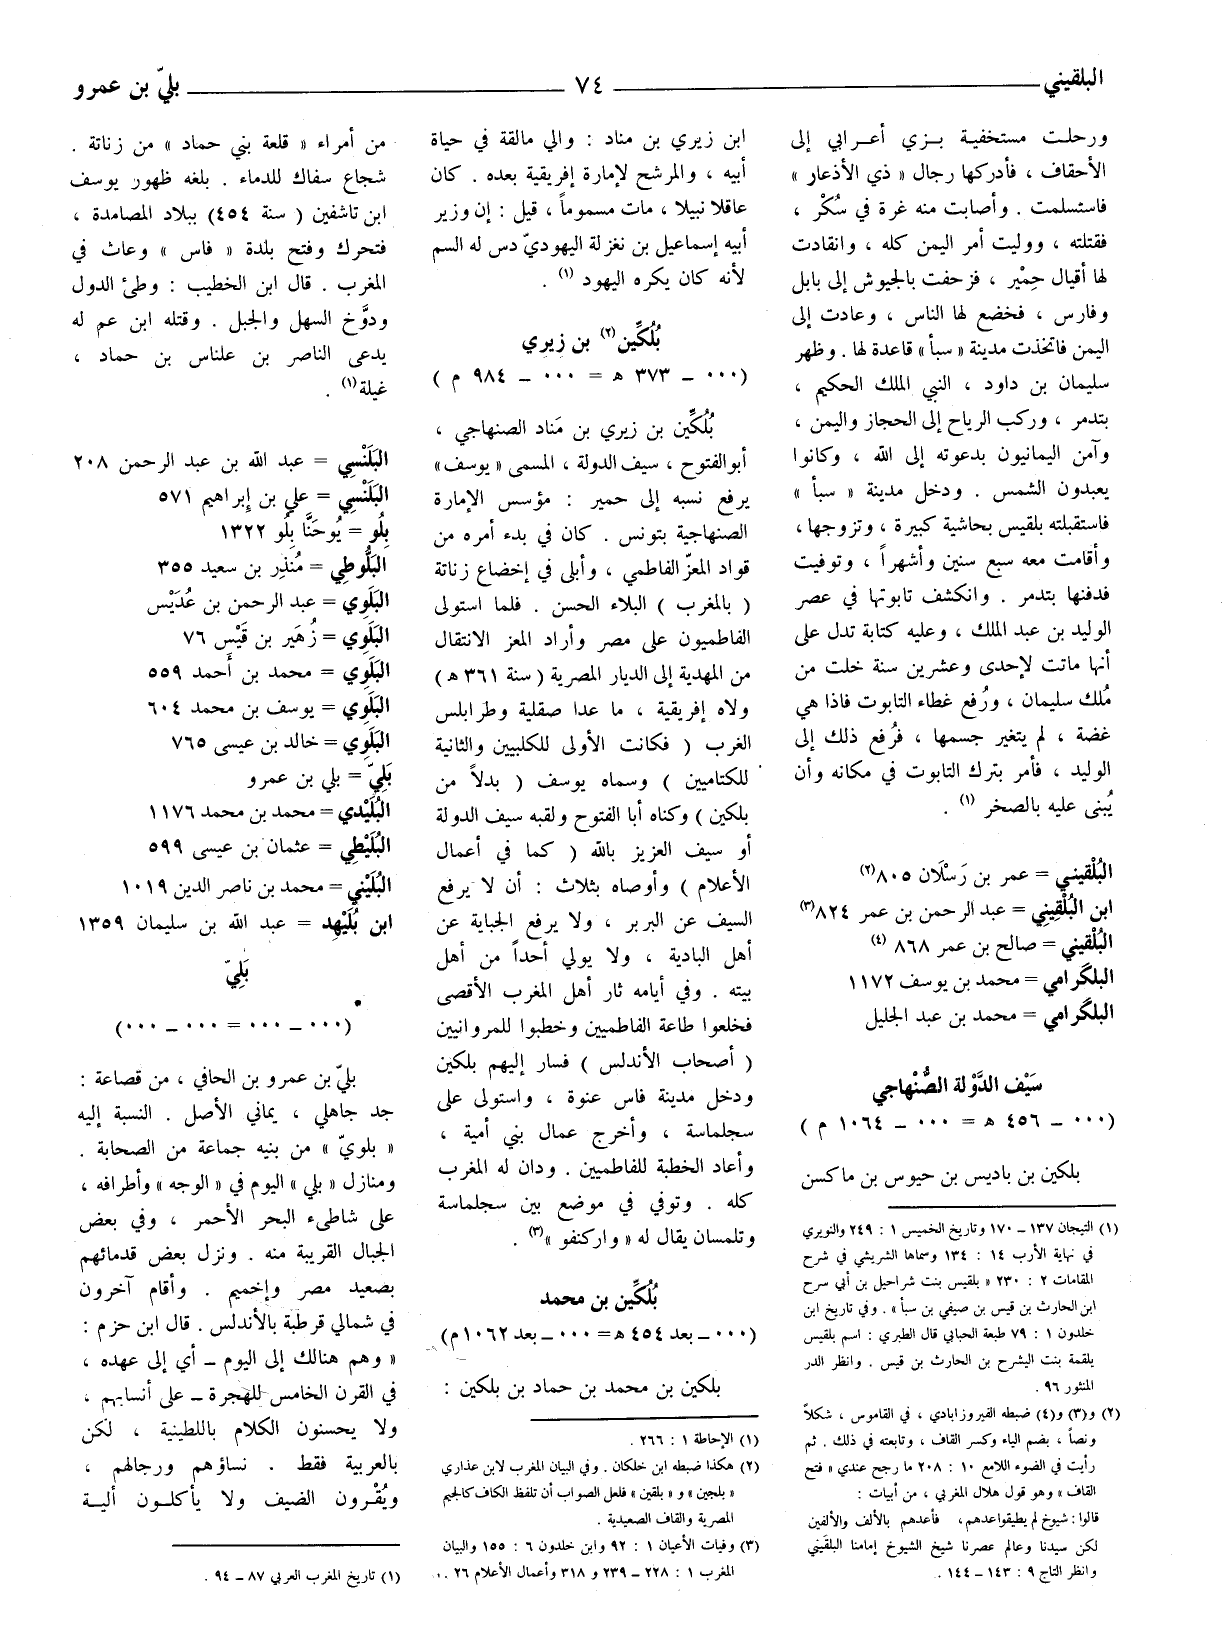 البلقيني
٧٤
بليّ بن عمرو
ورحلت مستخفية بزي أعرابي إلى
الأحقاف ، فأدركها رجال « ذي الأذعار »
فاستسلمت . وأصابت منه غرة في سُكْر ،
فقتلته ، ووليت أمر اليمن كله ، وانقادت
لها أقيال حِمْير ، فزحفت بالجيوش إلى بابل
وفارس ، فخضع لها الناس ، وعادت إلى
اليمن فاتخذت مدينة « سبأ » قاعدة لها . وظهر
سليمان بن داود ، النبي الملك الحكيم ،
بتدمر ، وركب الرياح إلى الحجاز واليمن ،
وآمن اليمانيون بدعوته إلى الله ، وكانوا
يعبدون الشمس . ودخل مدينة « سبأ »
فاستقبلته بلقيس بحاشية كبيرة ، وتزوجها ،
وأقامت معه سبع سنين وأشهراً ، وتوفيت
فدفنها بتدمر . وانكشف تابوتها في عصر
الوليد بن عبد الملك ، وعليه كتابة تدل على
أنها ماتت لإحدى وعشرين سنة خلت من
مُلك سليمان ، ورُفع غطاء التابوت فاذا هي
غضة ، لم يتغير جسمها ، فرُفع ذلك إلى
الوليد ، فأمر بترك التابوت في مكانه وأن
يُبنى عليه بالصخر (١) .
البُلْقيني = عمر بن رَسْلان ٨٠٥(٢)
ابن البُلْقِيني = عبد الرحمن بن عمر ٨٢٤(٣)
البُلْقيني = صالح بن عمر ٨٦٨ (٤)
البلگرامي = محمد بن يوسف ١١٧٢
البلگرامي = محمد بن عبد الجليل
سَيْف الدَّوْلة الصُّنْهاجي
(٠٠٠ – ٤٥٦ هـ = ٠٠٠ – ١٠٦٤ م )
بلكين بن باديس بن حيوس بن ماكسن
(١) التيجان ١٣٧ – ١٧٠ وتاريخ الخميس ١ : ٢٤٩ والنويري
في نهاية الأرب ١٤ : ١٣٤ وسماها الشريشي في شرح
المقامات ٢ : ٢٣٠ « بلقيس بنت شراحيل بن أبي سرح
ابن الحارث بن قيس بن صيفي بن سبأ » . وفي تاريخ ابن
خلدون ١ : ٧٩ طبعة الحبابي قال الطبري : اسم بلقيس
يلقمة بنت اليشرح بن الحارث بن قيس . وانظر الدر
المنثور ٩٦ .
(٢) و(٣) و(٤) ضبطه الفيروزابادي ، في القاموس ، شكلاً
ونصاً ، بضم الباء وكسر القاف ، وتابعته في ذلك . ثم
رأيت في الضوء اللامع ١٠ : ٢٠٨ ما رجح عندي « فتح
القاف » وهو قول هلال المغربي ، من أبيات :
قالوا : شيوخ لم يطيقوا عدهم، فأعدهم بالألف والألفين
لكن سيدنا وعالم عصرنا شيخ الشيوخ إمامنا البلقَيني
وانظر التاج ٩ : ١٤٣ – ١٤٤ .
ابن زيري بن مناد : والي مالقة في حياة
أبيه ، والمرشح لإمارة إفريقية بعده . كان
عاقلا نبيلا ، مات مسموماً ، قيل : إن وزير
أبيه إسماعيل بن نغزلة اليهوديّ دس له السم
لأنه كان يكره اليهود (١) .
بُلُكِّين(٢) بن زيري
(٠٠٠ – ٣٧٣ هـ = ٠٠٠ – ٩٨٤ م )
بُلُكِّين بن زيري بن مَناد الصنهاجي ،
أبوالفتوح ، سيف الدولة ، المسمى « يوسف »
يرفع نسبه إلى حمير : مؤسس الإمارة
الصنهاجية بتونس . كان في بدء أمره من
قواد المعزّ الفاطمي ، وأبلى في إخضاع زناتة
( بالمغرب ) البلاء الحسن . فلما استولى
الفاطميون على مصر وأراد المعز الانتقال
من المهدية إلى الديار المصرية ( سنة ٣٦١ هـ )
ولاه إفريقية ، ما عدا صقلية وطرابلس
الغرب ( فكانت الأولى للكلبيين والثانية
للكتاميين ) وسماه يوسف ( بدلاً من
بلكين ) وكناه أبا الفتوح ولقبه سيف الدولة
أو سيف العزيز بالله ( كما في أعمال
الأعلام ) وأوصاه بثلاث : أن لا يرفع
السيف عن البربر ، ولا يرفع الجباية عن
أهل البادية ، ولا يولي أحداً من أهل
بيته . وفي أيامه ثار أهل المغرب الأقصى
فخلعوا طاعة الفاطميين وخطبوا للمروانيين
( أصحاب الأندلس ) فسار إليهم بلكين
ودخل مدينة فاس عنوة ، واستولى على
سجلماسة ، وأخرج عمال بني أمية ،
وأعاد الخطبة للفاطميين . ودان له المغرب
كله . وتوفي في موضع بين سجلماسة
وتلمسان يقال له « واركنفو »(٣) .
بُلُكِّين بن محمد
(٠٠٠ – بعد ٤٥٤ هـ = ٠٠٠ – بعد ١٠٦٢ م)
بلكين بن محمد بن حماد بن بلكين :
(١) الإحاطة ١ : ٢٦٦ .
(٢) هكذا ضبطه ابن خلكان . وفي البيان المغرب لابن عذاري
« بلجين » و « بلقين » فلعل الصواب أن تلفظ الكاف كالجيم
المصرية والقاف الصعيدية .
(٣) وفيات الأعيان ١ : ٩٢ وابن خلدون ٦ : ١٥٥ والبيان
المغرب ١ : ٢٢٨ – ٢٣٩ و ٣١٨ وأعمال الأعلام ٢٦ .
من أمراء « قلعة بني حماد » من زناتة .
شجاع سفاك للدماء . بلغه ظهور يوسف
ابن تاشفين ( سنة ٤٥٤) ببلاد المصامدة ،
فتحرك وفتح بلدة « فاس » وعاث في
المغرب . قال ابن الخطيب : وطئ الدول
ودوَّخ السهل والجبل . وقتله ابن عم له
يدعى الناصر بن علناس بن حماد ،
غيلة(١) .
البَلَنْسِي = عبد الله بن عبد الرحمن ٢٠٨
البَلَنْسِي = علي بن إبراهيم ٥٧١
بِلُو = يُوحَنَّا بِلُو ١٣٢٢
البَلُّوطِي = مُنْذِر بن سعيد ٣٥٥
البَلَوِي = عبد الرحمن بن عُدَيْس
البَلَوِي = زُهَير بن قَيْس ٧٦
البَلَوِي = محمد بن أَحمد ٥٥٩
البَلَوِي = يوسف بن محمد ٦٠٤
البَلَوِي = خالد بن عيسى ٧٦٥
بَلِيّ = بلي بن عمرو
البُلَيْدي = محمد بن محمد ١١٧٦
البُلَيْطِي = عثمان بن عيسى ٥٩٩
البُلَيْني = محمد بن ناصر الدين ١٠١٩
ابن بُلَيْهِد = عبد الله بن سليمان ١٣٥٩
بَلِيّ
(٠٠٠ – ٠٠٠ = ٠٠٠ – ٠٠٠)
بليّ بن عمرو بن الحافي ، من قصاعة :
جد جاهلي ، يماني الأصل . النسبة إليه
« بلويّ » من بنيه جماعة من الصحابة .
ومنازل « بلي » اليوم في « الوجه » وأطرافه ،
على شاطىء البحر الأحمر ، وفي بعض
الجبال القريبة منه . ونزل بعض قدمائهم
بصعيد مصر وإخميم . وأقام آخرون
في شمالي قرطبة بالأندلس . قال ابن حزم :
« وهم هنالك إلى اليوم – أي إلى عهده ،
في القرن الخامس للهجرة – على أنسابهم ،
ولا يحسنون الكلام باللطينية ، لكن
بالعربية فقط . نساؤهم ورجالهم ،
ويُقْرون الضيف ولا يأكلون ألية
(١) تاريخ المغرب العربي ٨٧ – ٩٤ .